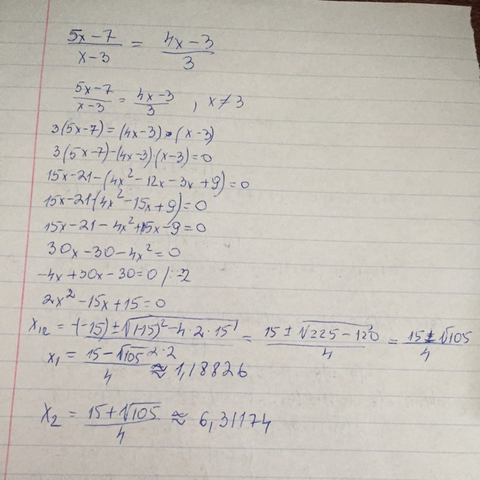 (5x-7)/(x-3) = (4x-3)/3
(5x-7)/(x-3) = (4x-3)/3 , x≠3
3(5x-7)=(4x-3)·(x-3)
3(5x-7)-(4x-3)(x-3)=0
15x-21-(4x²-12x-3x+9)=0
15x-21-(4x²-15x+9)=0
15x-21-4x²+15x-9=0
30x-30-4x²=0
-4x+30x-30=0 /:-2
2x²-15x+15=0
x₁,₂ = (-(-15)±√((-15)²-4·2·15))/(2·2) = (15±√(225-120))/4 = (15±√105)/4
x₁ = (15-√105)/4 ≈ 1,18826
x₂ = (15+√105)/4 ≈ 6,31174